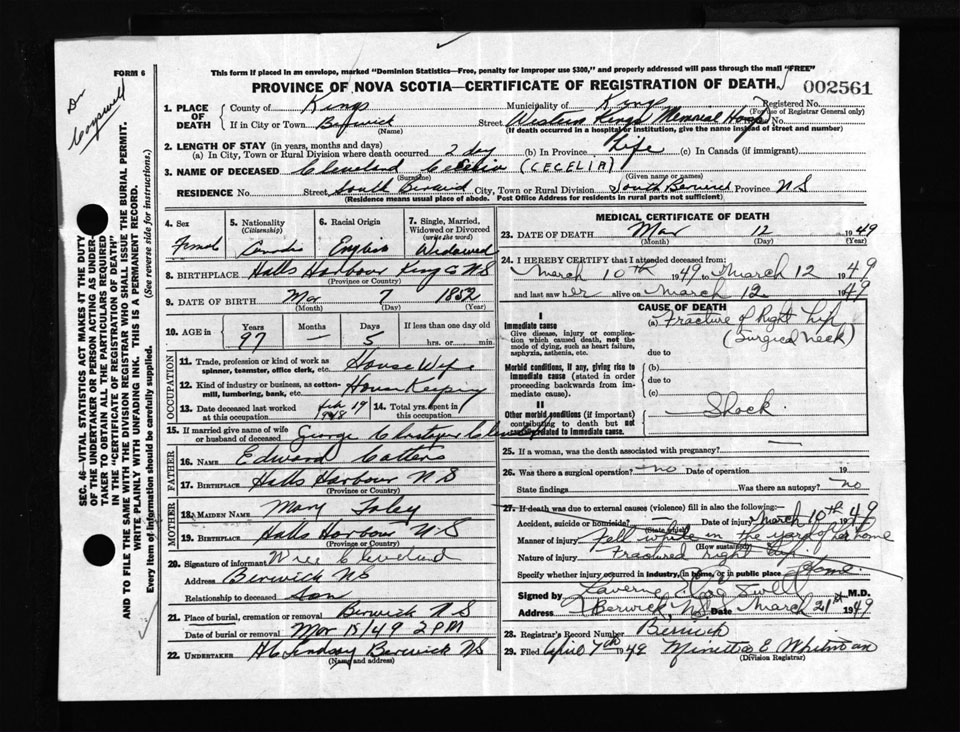 FORM 6
This form if placed in an envelope, marked "Dominion Statistics—Free, penalty for improper use $300," and properly addressed will pass through the mail "FREE"
PROVINCE OF NOVA SCOTIA—CERTIFICATE OF REGISTRATION OF DEATH
002561
Dr Cogswell
1. PLACE OF DEATH County of Kings Municipality of Kings Registered No.
(For use of Registrar General only)
If in City or Town Berwick Street Western Kings Memorial Hosp No.
(Name) (If death occurred in a hospital or institution, give the name instead of street and number)
2. LENGTH OF STAY (in years, months and days)
(a) In City, Town or Rural Division where death occurred 2 day (b) In Province Life (c) In Canada (if immigrant)
3. NAME OF DECEASED Cleveland Cecelia (CECELIA)
(Surname) (Given name or names)
RESIDENCE No. Street South Berwick City, Town or Rural Division South Berwick Province NS
(Residence means usual place of abode. Post Office Address for residents in rural parts not sufficient)
4. Sex Female
5. Nationality (Citizenship) Canada
6. Racial Origin English
7. Single, Married, Widowed or Divorced (write the word) Widowed
8. BIRTHPLACE Halls Harbour King Co NS
(Province or Country)
9. DATE OF BIRTH Mar 7 1852
(Month) (Day) (Year)
10. AGE in Years Months Days If less than one day old
97 — 5 hrs. or min.
OCCUPATION
11. Trade, profession or kind of work as spinner, teamster, office clerk, etc. House Wife
12. Kind of industry or business, as cotton-mill, lumbering, bank, etc. House Keeping
13. Date deceased last worked at this occupation 14. Total yrs. spent in this occupation
15. If married give name of wife or husband of deceased George
FATHER
16. NAME Edward
17. BIRTHPLACE Halls Harbour NS
(Province or Country)
MOTHER
18. MAIDEN NAME Mary Foley
19. BIRTHPLACE Halls Harbour NS
(Province or Country)
20. Signature of informant Cleveland
Address Berwick NS
Relationship to deceased Son
21. Place of burial, cremation or removal Berwick NS
Date of burial or removal Mar 15/49 2 PM
22. UNDERTAKER Lindsay Berwick NS
(Name and address)
MEDICAL CERTIFICATE OF DEATH
23. DATE OF DEATH Mar 12 1949
(Month) (Day) (Year)
24. I HEREBY CERTIFY that I attended deceased from:
March 10th 1949 to March 12 1949
and last saw her alive on March 12 1949
CAUSE OF DEATH
I
Immediate cause
Give disease, injury or complication which caused death, not the mode of dying, such as heart failure, asphyxia, asthenia, etc.
(a) Fracture of Right Hip
(Surgical Neck)
due to
Morbid conditions, if any, giving rise to immediate cause (stated in order proceeding backwards from immediate cause).
(b)
due to
(c)
II
Other morbid conditions (if important) contributing to death but not causally related to immediate cause.
Shock
25. If a woman, was the death associated with pregnancy? —
26. Was there a surgical operation? no Date of operation 19
State findings Was there an autopsy? no
27. If death was due to external causes (violence) fill in also the following:—
Accident, suicide or homicide? Date of injury March 10th 1949
(State which)
Manner of injury Fell while in the yard of her home
(How sustained)
Nature of injury Fractured right hip.
Specify whether injury occurred in industry, in home, or in public place Home.
Signed by Laverne Cogswell M.D.
Address Berwick N.S. Date March 21st 1949
28. Registrar's Record Number Berwick
29. Filed April 7th 1949 E Whitman
(Division Registrar)
SEC. 46—VITAL STATISTICS ACT MAKES IT THE DUTY OF THE UNDERTAKER OR PERSON ACTING AS UNDERTAKER TO OBTAIN ALL THE PARTICULARS REQUIRED IN THE "CERTIFICATE OF REGISTRATION OF DEATH" AND TO FILE THE SAME WITH THE DIVISION REGISTRAR WHO SHALL ISSUE THE BURIAL PERMIT.
WRITE PLAINLY WITH UNFADING INK. THIS IS A PERMANENT RECORD.
Every item of information should be carefully supplied. (See reverse side for instructions.)